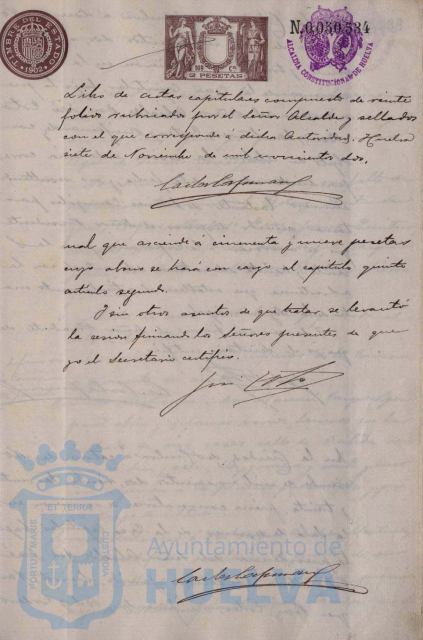 TIMBRE DEL ESTADO
1902
2 PESETAS
N.0.030.534
ALCALDIA CONSTITUCIONAL DE HUELVA
Libro de actas capitulares compuesto de veinte
folios rubricados por el Señor Alcalde y sellados
con el que corresponde á dicha Autoridad. Huelva
siete de Noviembre de mil novecientos dos.
nual que asciende a cincuenta y nueve pesetas
cuyo abono se hará con cargo al capítulo quinto
artículo segundo.
Y sin otros asuntos de que tratar, se levantó
la sesion firmando los Señores presentes de que
yo el Secretario certifico.
PORTUS MARIS ET TERRAE CUSTODIA
Ayuntamiento de
HUELVA